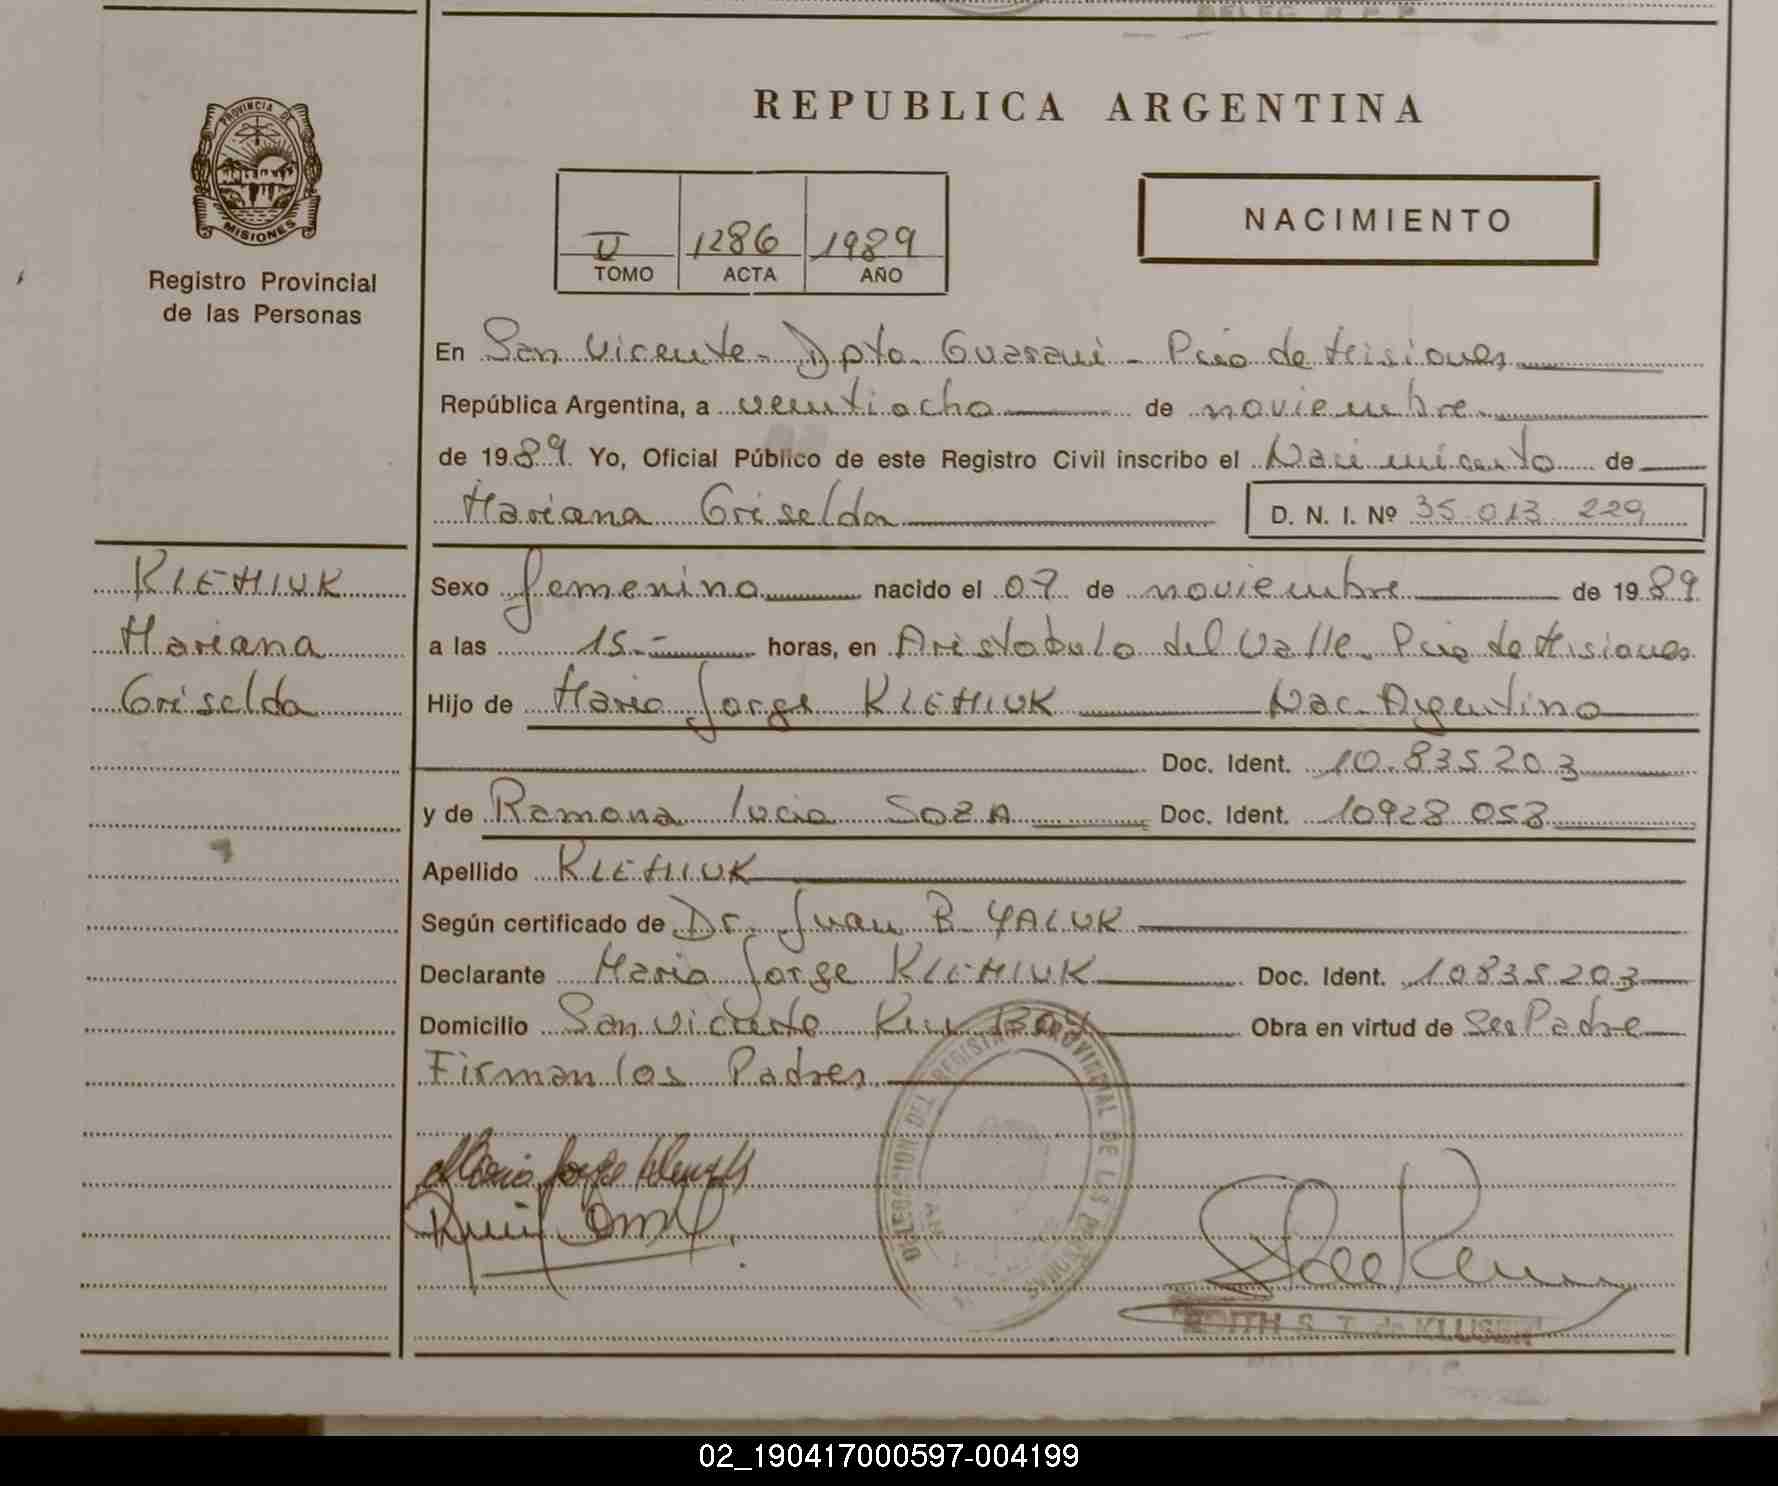 REPUBLICA ARGENTINA
PROVINCIA DE
MISIONES
Registro Provincial
de las Personas
V 1286 1989
TOMO ACTA AÑO
NACIMIENTO
En San Vicente - Dpto. Guaraní - Pcia de Misiones
República Argentina, a veintiocho de noviembre
de 1989. Yo, Oficial Público de este Registro Civil inscribo el Nacimiento de
Mariana Griselda D. N. I. Nº 35.013.229
KLEMIUK
Mariana
Griselda
Sexo femenino nacido el 07 de noviembre de 1989
a las 15.- horas, en Aristobulo del Valle. Pcia de Misiones
Hijo de Mario Jorge KLEMIUK Nac. Argentino
Doc. Ident. 10.835.203
y de Ramona Lucia SOZA Doc. Ident. 10928.058
Apellido KLEMIUK
Según certificado de Dr. Juan B. YALUK
Declarante Mario Jorge KLEMIUK Doc. Ident. 10.835.203
Domicilio San Vicente Obra en virtud de Ser Padre
Firman los Padres
DELEGACION DEL REGISTRO PROVINCIAL DE LAS PERSONAS
EDITH S. T. de KLUSER
02_190417000597-004199